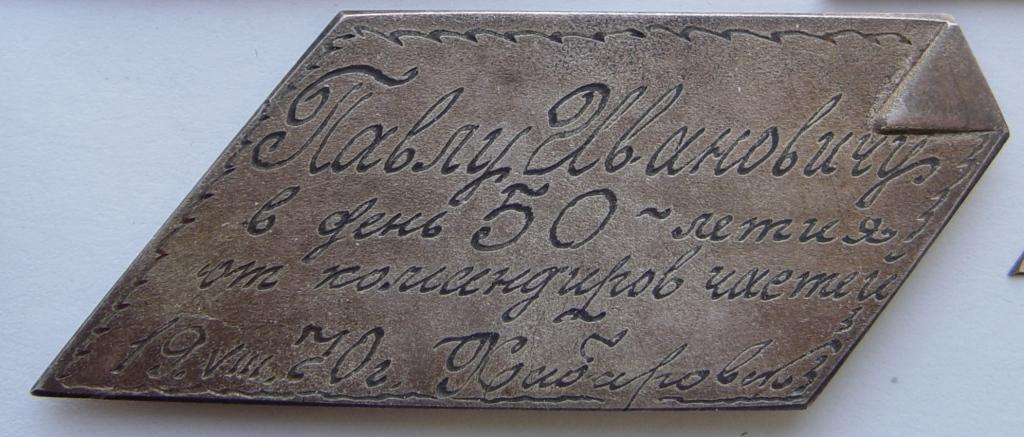 Павлу Ивановичу
в день 50-летия
от командиров частей
19.VIII.70г. г. Хабаровск